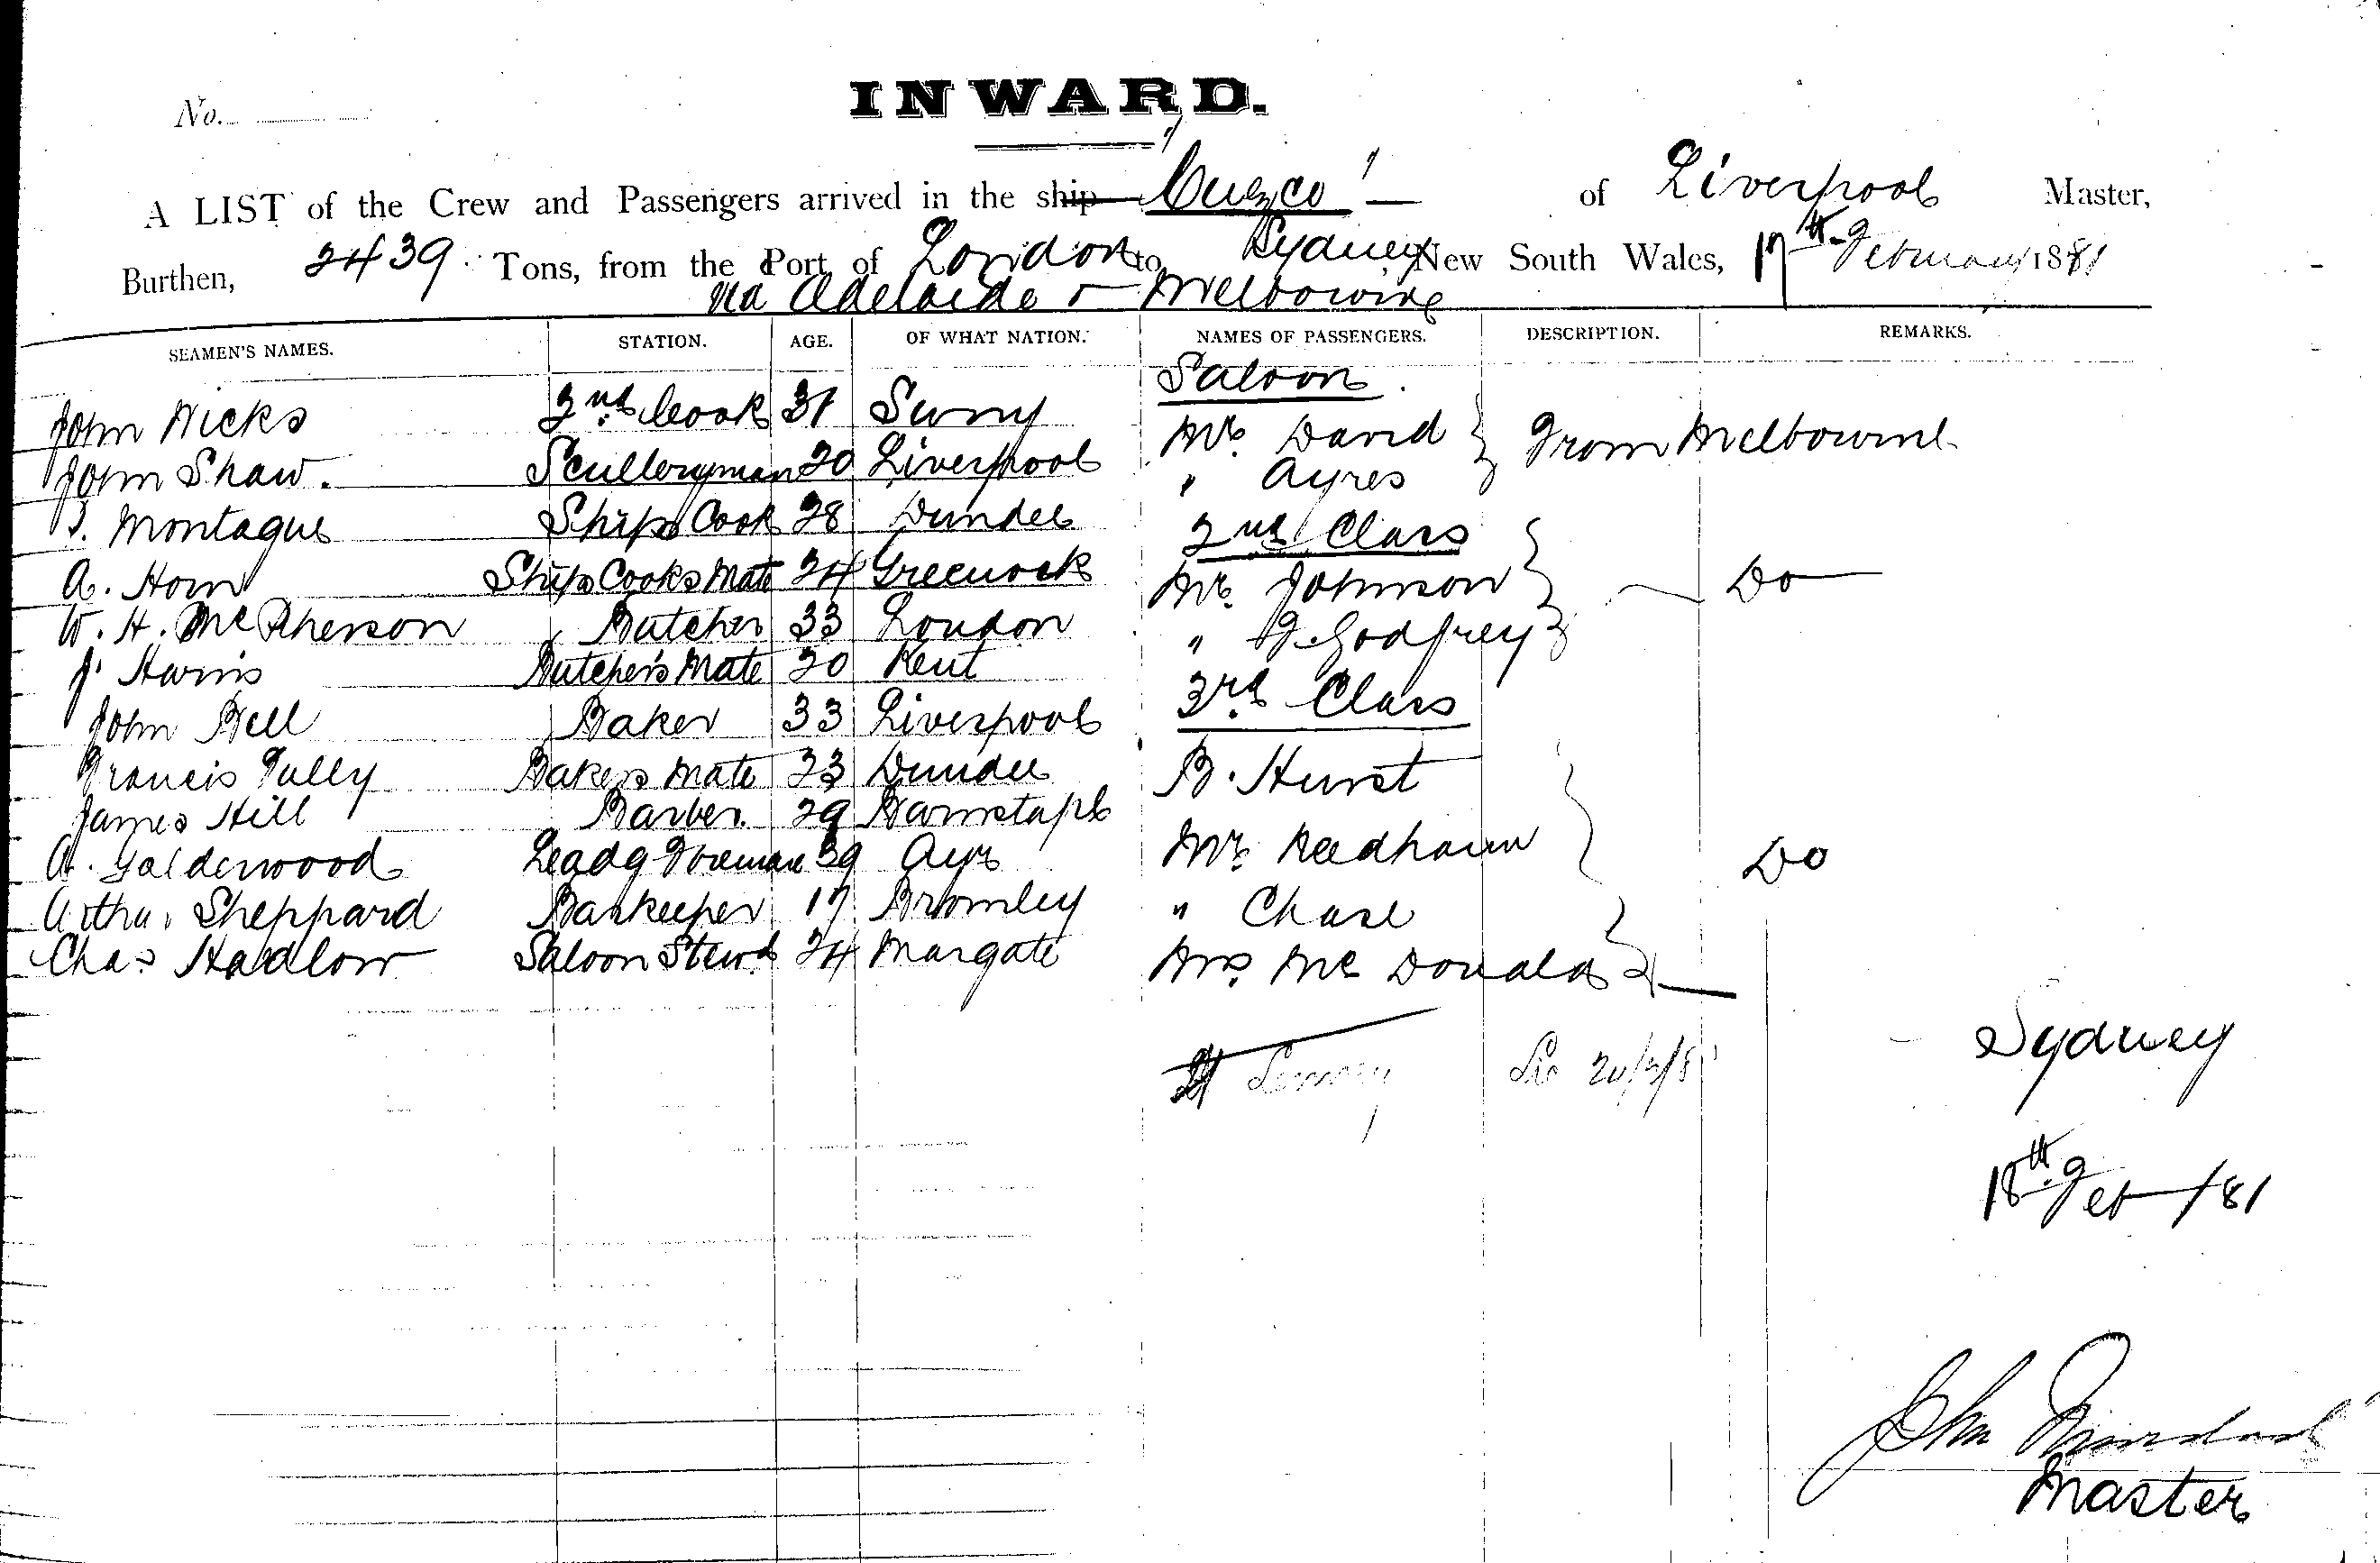 No.
INWARD.
A LIST of the Crew and Passengers arrived in the ship "Cuzco" of Liverpool Master,
Burthen, 2439 Tons, from the Port of London to Sydney, New South Wales, 17th February 1881
via Adelaide & Melbourne
SEAMEN'S NAMES. STATION. AGE. OF WHAT NATION. NAMES OF PASSENGERS. DESCRIPTION. REMARKS.
Saloon
John Hicks 2nd Cook 31 Surry Mr. David From Melbourne
John Shaw. Sculleryman 20 Liverpool " Ayres
Montague Ships Cook 28 Dundee 2nd Class
A. Horn Ships Cooks Mate 24 Greenock Mr. Johnson Do
W. H. McPherson Butcher 33 London " Godfrey
J. Harris Butcher's Mate 20 Kent
John Bell Baker 33 Liverpool 3rd Class
Francis Tully Bakers Mate 23 Dundee B. Hurst
James Hill Barber. 29 Barnstaple
A. Galderwood Leadg Foreman 39 Ayr Mr. Needham Do
Arthur Sheppard Barkeeper 17 Bromley " Chase
Chas Hadlow Saloon Stewd 24 Margate Mrs. McDonald
Sydney
18th Feb /81
John
Master